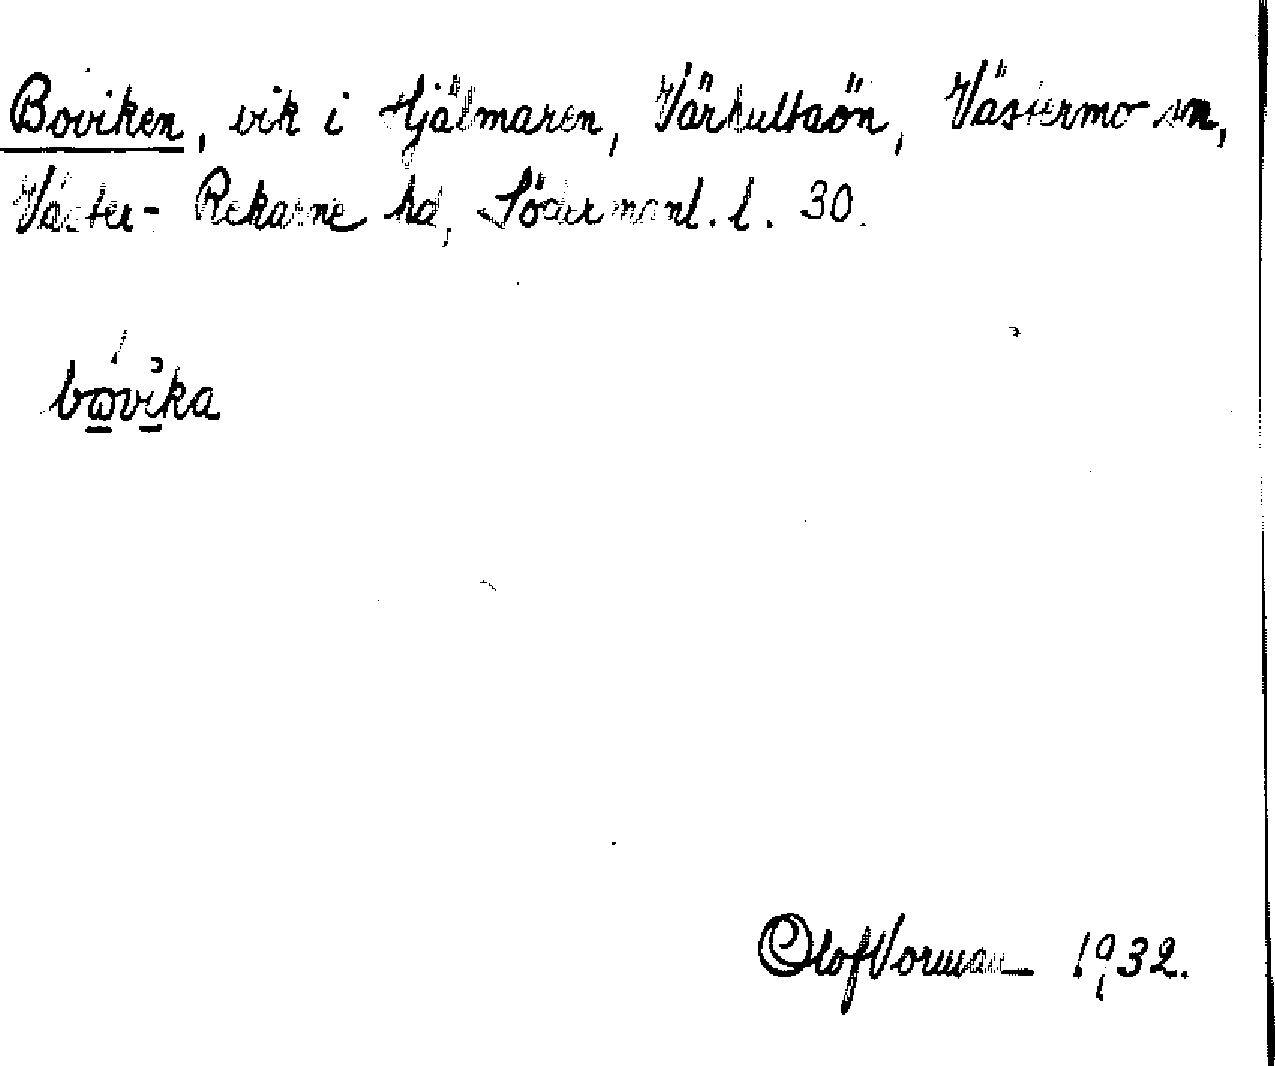 Boviken, vik i Hjälmaren, Värhultaön, Västermo sn,
Väster-Rekarne hd, Södermanl. l. 30.
bωvika
Olof Vorman 1932.